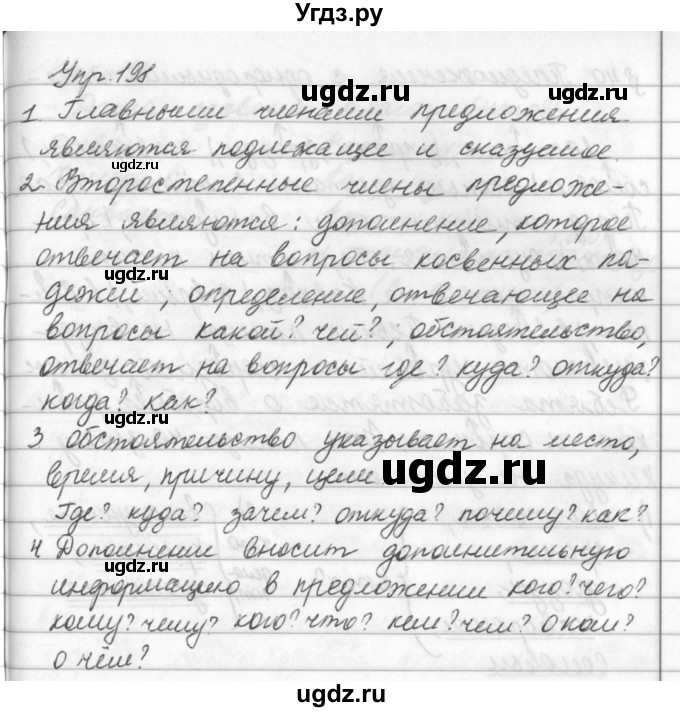 Угдз.ру
Упр. 198
1 Главными членами предложения
являются подлежащее и сказуемое.
2. Второстепенные члены предложе-
ния являются: дополнение, которое
отвечает на вопросы косвенных па-
дежей; определение, отвечающее на
вопросы какой? чей?; обстоятельство,
отвечает на вопросы где? куда? откуда?
когда? как?
3 Обстоятельство указывает на место,
время, причину, цели
Где? куда? зачем? откуда? почему? как?
4 Дополнение вносит дополнительную
информацию в предложении кого? чего?
кому? чему? кого? что? кем? чем? о ком?
о чём?
ugdz.ru
ugdz.ru
ugdz.ru
ugdz.ru
ugdz.ru
ugdz.ru
ugdz.ru
ugdz.ru
ugdz.ru